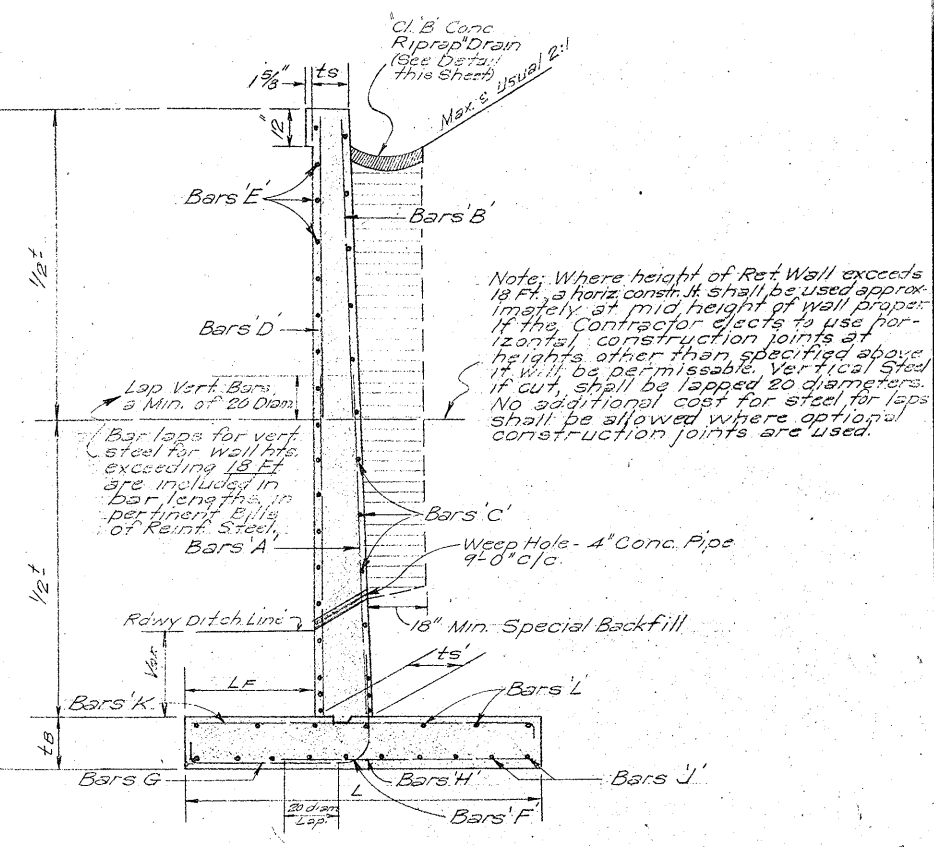 "Cl. 'B' Conc
Riprap" Drain
(See Detail
this Sheet)
1 5/8"
ts
Max. & Usual 2:1
12"
Bars 'E'
Bars 'B'
1/2 ±
Note: Where height of Ret. Wall exceeds
18 Ft., a horiz. constr. Jt. shall be used approx-
imately at mid height of wall proper.
If the Contractor elects to use hor-
izontal construction joints at
heights other than specified above
it will be permissable. Vertical Steel
if cut, shall be lapped 20 diameters.
No additional cost for steel for laps
shall be allowed where optional
construction joints are used.
Bars 'D'
Lap Vert. Bars
a Min. of 20 Diam.
Bar laps for vert.
steel for wall hts.
exceeding 18 Ft
are included in
bar lengths in
pertinent Bills
of Reinf. Steel.
Bars 'C'
Bars 'A'
Weep Hole - 4" Conc. Pipe
9'-0" c/c
1/2 ±
Rdwy Ditch Line
18" Min. Special Backfill
Var.
ts'
LF
Bars 'K'
Bars 'L'
tB
Bars G
Bars 'H'
Bars 'J'
L
20 diam
Lap.
Bars 'F'